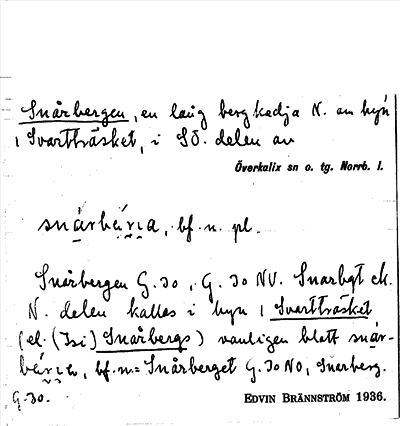 Snårbergen, en lång bergkedja N. om byn
1 Svartträsket, i SÖ. delen av
Överkalix sn o. tg. Norrb. l.
snårbärıa, bf. n. pl.
Snårbergen G. 30, G. 30 NV. Snarbgt ek.
N. delen kallas i byn 1 Svartträsket
(el. (Isi) Snårbergs) vanligen blott snår-
bärıa, bf. m = Snårberget G. 30 NO, Snarberg.
G. 30. EDVIN BRÄNNSTRÖM 1936.